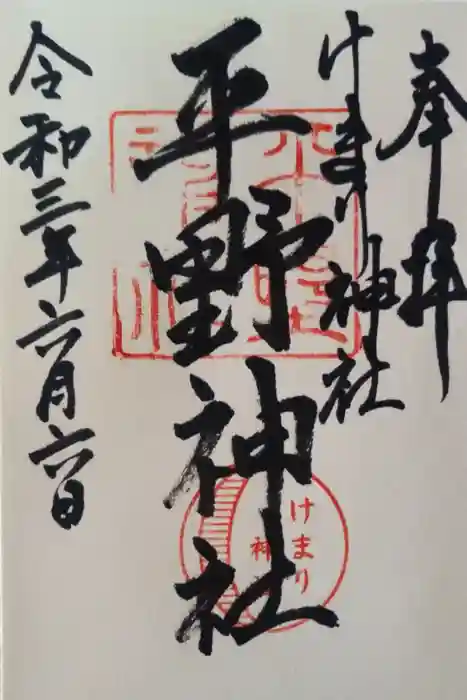 奉拝
けまり神社
平野神社
令和三年六月六日
けまり
神